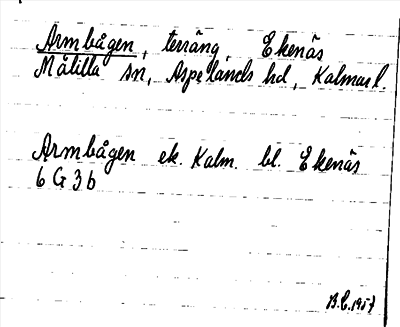 Armbågen, terräng, Ekenäs
Målilla sn, Aspelands hd, Kalmar l.
Armbågen ek. Kalm. bl. Ekenäs
6 G 3 b